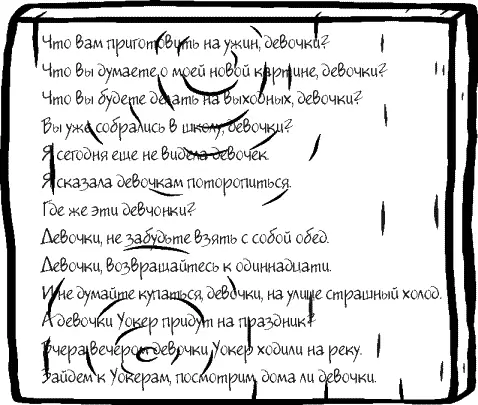 Что вам приготовить на ужин, девочки?
Что вы думаете о моей новой картине, девочки?
Что вы будете делать на выходных, девочки?
Вы уже собрались в школу, девочки?
Я сегодня еще не видела девочек.
Я сказала девочкам поторопиться.
Где же эти девчонки?
Девочки, не забудьте взять с собой обед.
Девочки, возвращайтесь к одиннадцати.
И не думайте купаться, девочки, на улице страшный холод.
А девочки Уокер придут на праздник?
Вчера вечером девочки Уокер ходили на реку.
Зайдем к Уокерам, посмотрим, дома ли девочки.